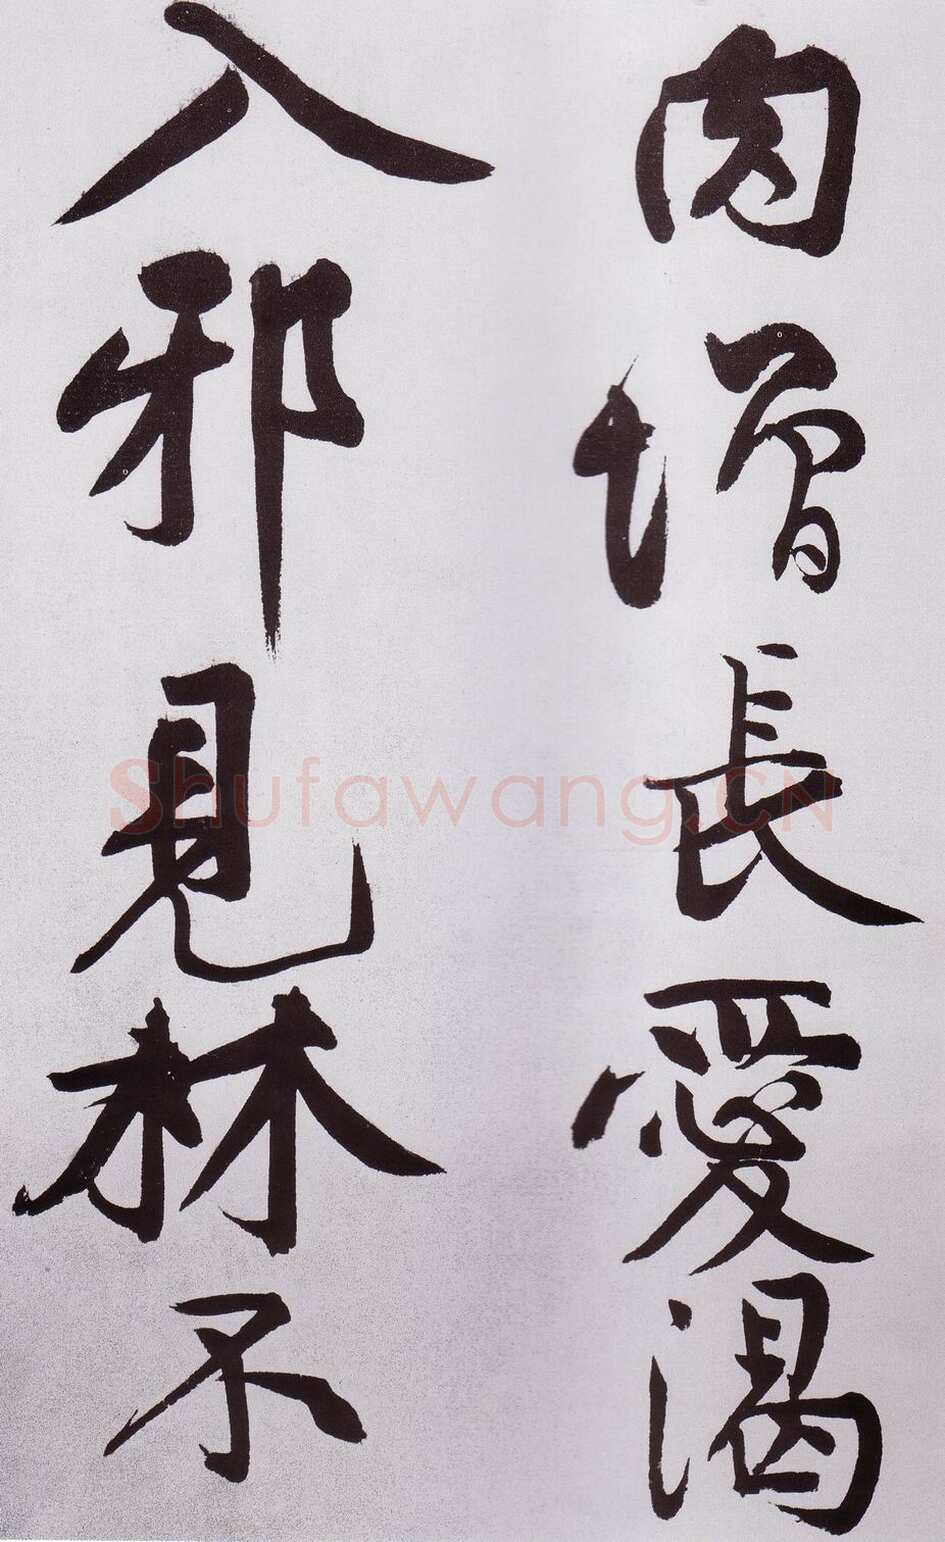 肉增長愛渴
入邪見林不
Shufawang.CN